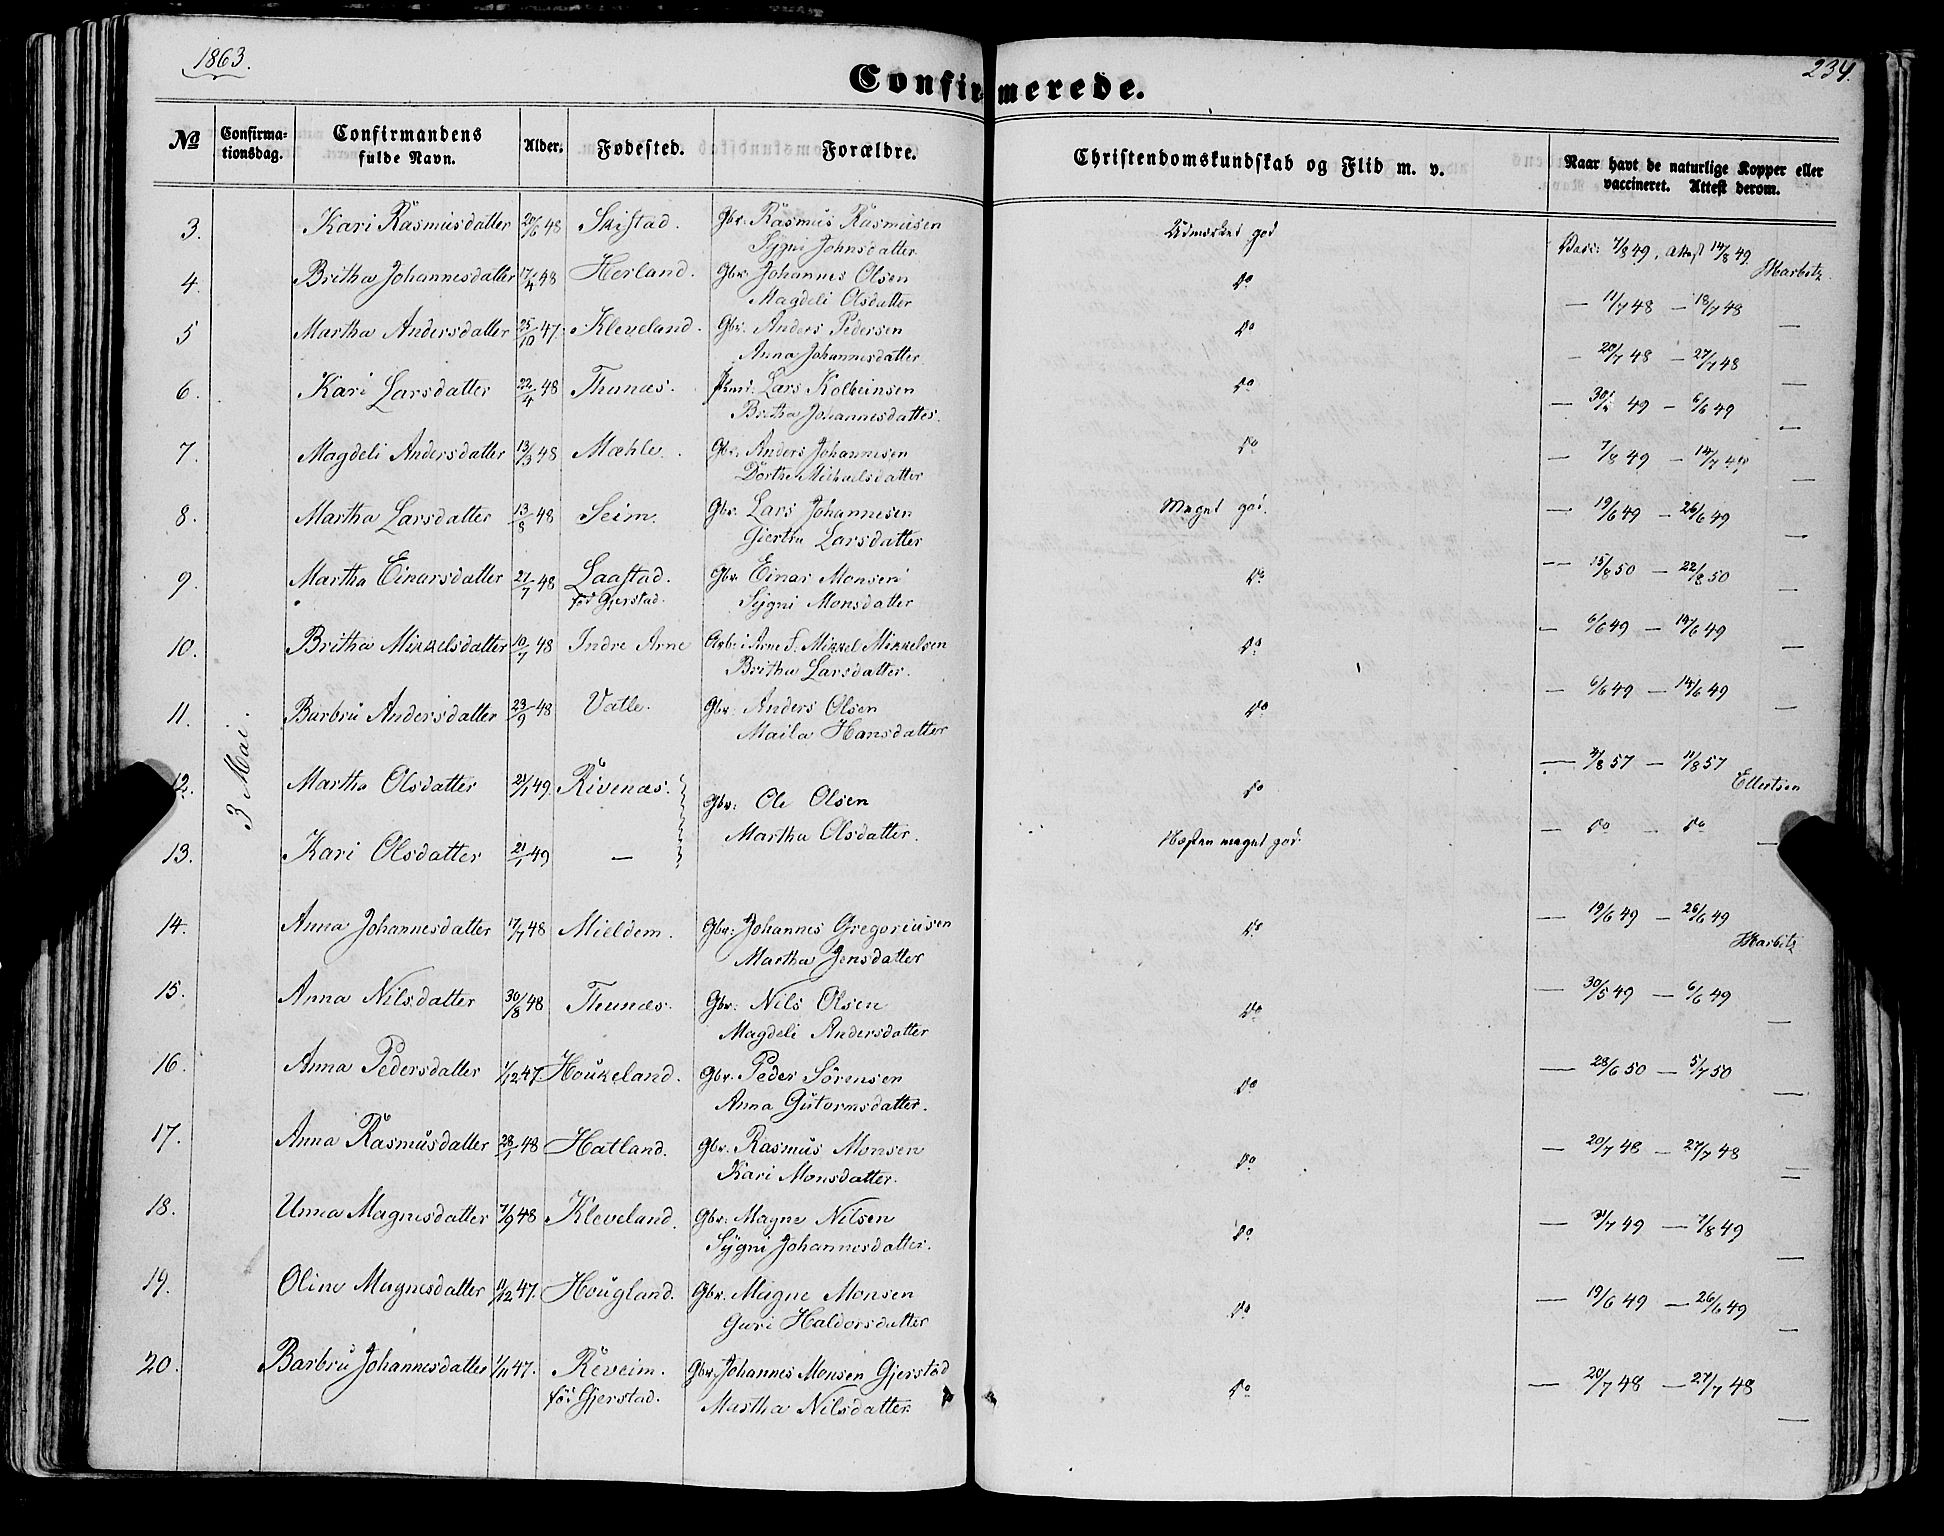 1863.
234.
Confirmerede.
No Confirma-tionsdag. Confirmandens fulde Navn. Alder. Fødested. Forældre. Christendomskundskab og Flid m. v. Naar havt de naturlige Kopper eller vaccineret. Attest derom.
3 Mai.
3. Kari Rasmusdatter 20/6 48 Skistad. Gbr. Rasmus Rasmusen Udmærket god Vacc: 7/8 49, Attest 14/8 49. Marbitz
Sygni Johnsdatter
4. Britha Johannesdatter 17/4 48 Herland. Gbr. Johannes Olsen Do — 11/7 48 — 18/7 48 —
Magdeli Olsdatter
5 Martha Andersdatter 25/10 47. Kleveland. Gbr. Anders Pedersen Do — 20/7 48 — 27/7 48 —
Anna Johannesdatter
6. Kari Larsdatter 22/4 48 Thunæs. Lars Kolbeinsen Do — 49 — 6/6 49 —
Britha Johannesdatter.
7. Magdeli Andersdatter 13/3 48 Mæhle. Gbr. Anders Johannesen Do — 7/8 49 — 14/7 49 —
Dorthe Michaelsdatter
8. Martha Larsdatter 13/8 48 Seim. Gbr. Lars Johannesen Meget god. — 19/6 49 — 26/6 49 —
Giertru Larsdatter
9. Martha Einarsdatter 21/7 48 Laastad. Gbr. Einar Monsen Do — 15/8 50 — 22/8 50 —
fød Gjerstad. Sygni Monsdatter
10. Britha Mikkelsdatter 10/7 48 Indre Arne Arb: i Arne F. Mikkel Mikkelsen Do — 6/6 49 — 14/6 49 —
Britha Larsdatter.
11. Barbru Andersdatter 23/9 48 Vatle. Gbr. Anders Olsen Do — 6/6 49 — 14/6 49 —
Maila Hansdatter
12. Martha Olsdatter 21/1 49. Rivenæs. Gbr: Ole Olsen Do — 4/8 57 — 11/8 57 Ellertsen
Martha Olsdatter.
13. Kari Olsdatter 21/1 49 — Næsten meget god — Do — Do —
14. Anna Johannesdatter 17/7 48 Mieldem. Gbr: Johannes Gregoriusen Do — 19/6 49 — 26/6 49 Marbitz
Martha Jensdatter
15. Anna Nilsdatter 30/8 48 Thunæs. Gbr. Nils Olsen Do — 30/5 49 — 6/6 49 —
Magdeli Andersdatter
16. Anna Pedersdatter 1/12 47 Houkeland. Gbr. Peder Sörensen Do — 28/6 50 — 5/7 50 —
Anna Gutormsdatter.
17. Anna Rasmusdatter 28/1 48 Hatland. Gbr. Rasmus Monsen Do — 20/7 48 — 27/7 48 —
Kari Monsdatter.
18. Unna Magnesdatter 7/9 48 Kleveland. Gbr: Magne Nilsen Do — 31/7 49 — 7/8 49 —
Sygni Johannesdatter.
19. Oline Magnesdatter 11/12 47. Hougland. Gbr. Magne Monsen Do — 19/6 49 — 26/6 49 —
Guri Haldorsdatter
20. Barbru Johannesdatter 1/11 47. Reveim. Gbr. Johannes Monsen Gjerstad Do — 20/7 48 — 27/7 48 —
fød Gjerstad. Martha Nilsdatter.